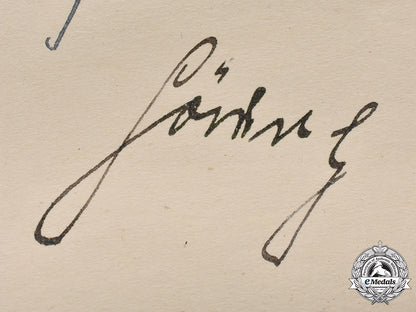 Göring
eMedals